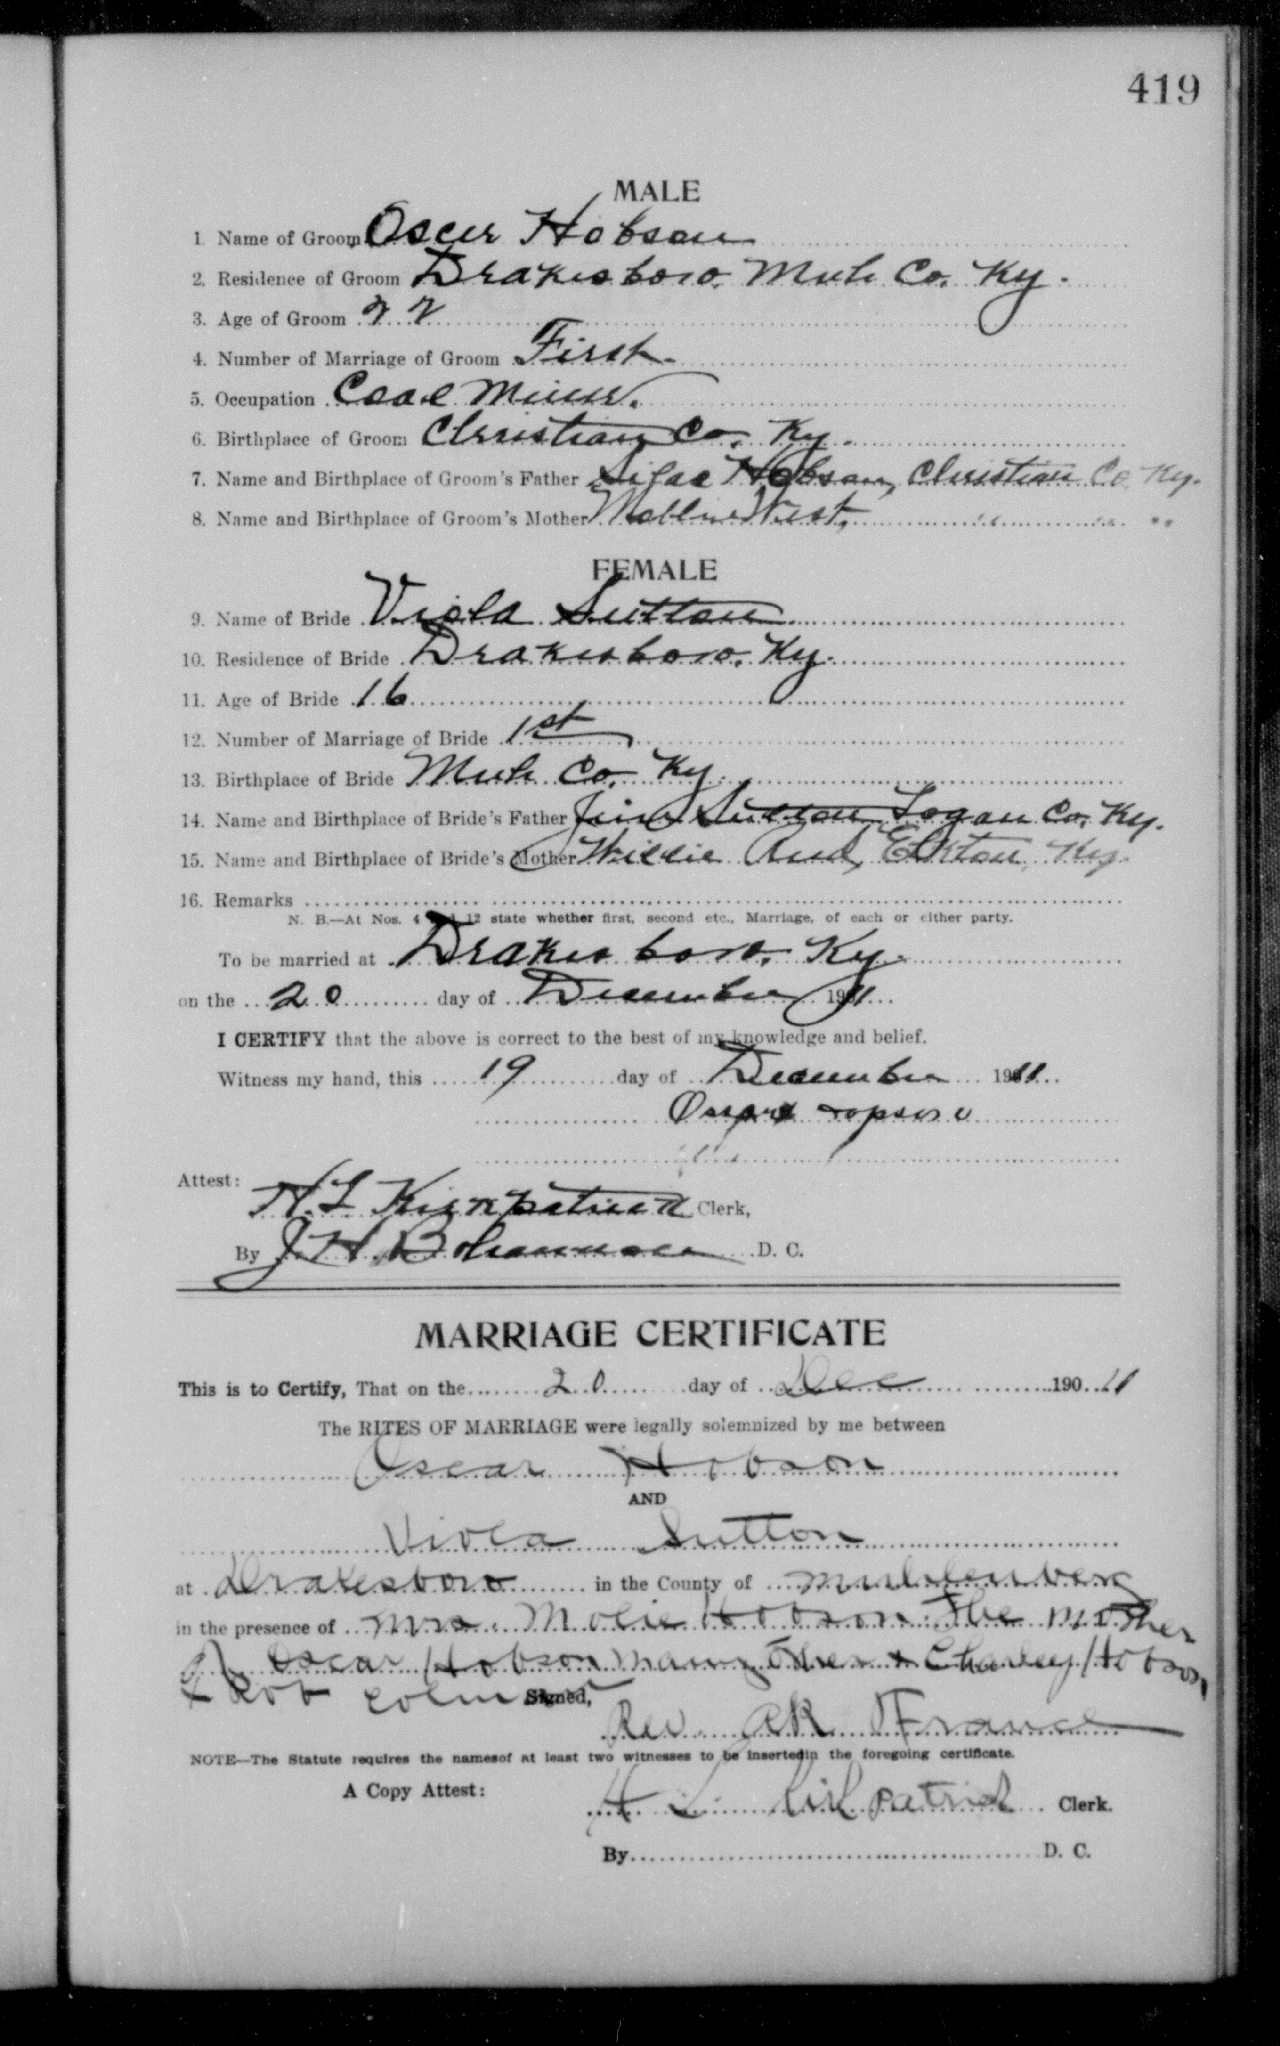 419
MALE
1. Name of Groom Oscar Hobson
2. Residence of Groom Drakesboro. Muh Co. Ky.
3. Age of Groom 22
4. Number of Marriage of Groom First.
5. Occupation Coal Miner.
6. Birthplace of Groom Christian Co. Ky.
7. Name and Birthplace of Groom's Father Hobson, Christian Co. Ky.
8. Name and Birthplace of Groom's Mother Mollie West, " " "
FEMALE
9. Name of Bride Viola Sutton
10. Residence of Bride Drakesboro. Ky.
11. Age of Bride 16
12. Number of Marriage of Bride 1st
13. Birthplace of Bride Muh Co. Ky.
14. Name and Birthplace of Bride's Father Jim Sutton Logan Co. Ky.
15. Name and Birthplace of Bride's Mother Willie Elkton, Ky.
16. Remarks
N. B.—At Nos. 4 12 state whether first, second etc., Marriage, of each or either party.
To be married at Drakesboro. Ky.
on the 20 day of December 1911
I CERTIFY that the above is correct to the best of my knowledge and belief.
Witness my hand, this 19 day of December 1911
Attest:
H. L Kirkpatrick Clerk,
By J H Bohannon D. C.
MARRIAGE CERTIFICATE
This is to Certify, That on the 20 day of Dec 190 11
The RITES OF MARRIAGE were legally solemnized by me between
Oscar Hobson
AND
Viola Sutton
at Drakesboro in the County of Muhlenberg
in the presence of Mrs. Molie Hobson The mother
of Oscar Hobson many other & Charley Hobson
& Rob Signed,
Rev. France
NOTE—The Statute requires the namesof at least two witnesses to be insertedin the foregoing certificate.
A Copy Attest:
H L Kirkpatrick Clerk.
By D. C.